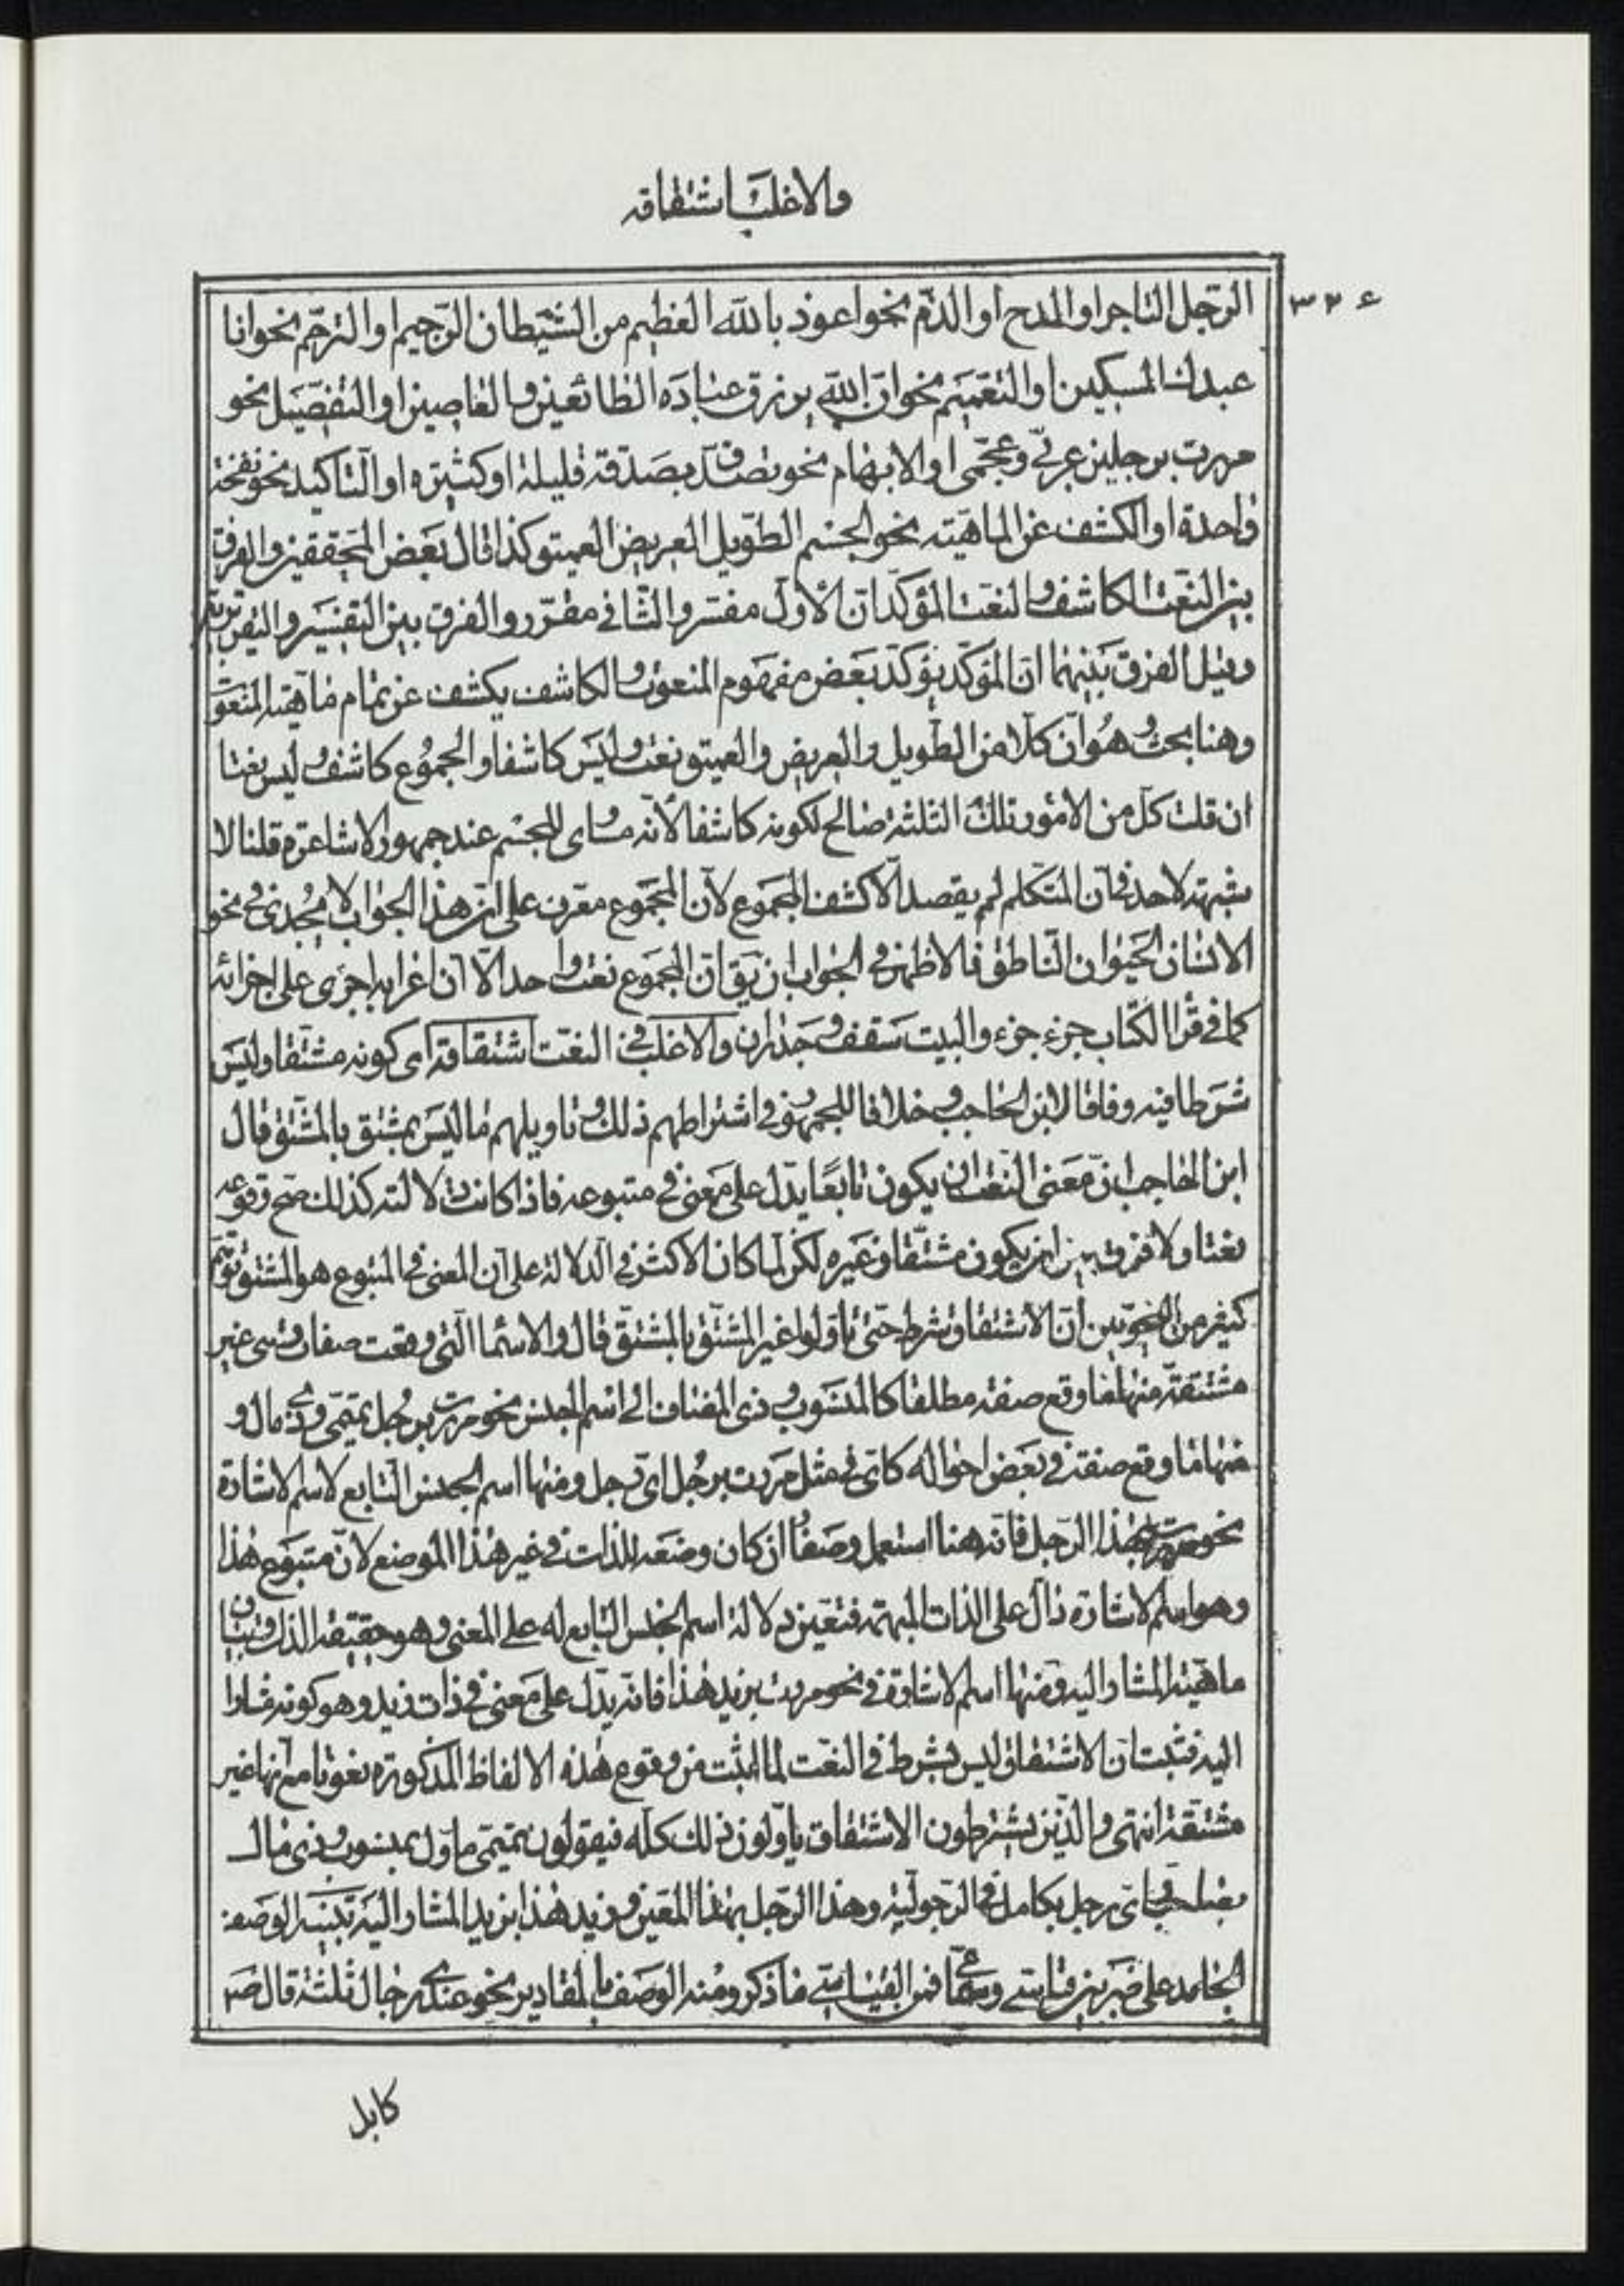 والاغلب اشتقاقه
٣٢٤
الرّجل التاجر او المدح او الذّم نحو اعوذ بالله العظيم من الشيطان الرّجيم او الترحّم نحو انا
عبدك المسكين او التعميم نحو انّ الله يرزق عباده الطائعين والعاصين او التفصيل نحو
مررت برجلين عربيّ وعجميّ او الابهام نحو تصدّق بصدقة قليلة او كثيرة او التاكيد نحو نفخة
واحدة او الكشف عن الماهيّته نحو الجسم الطّويل العريض العميق كذا قال بعض المحققين والفرق
بين النعت الكاشف والنعت المؤكد انّ الأوّل مفسّر والثّاني مقرّر والفرق بين التفسير والتقرير
وقيل الفرق بينهما انّ المؤكد يؤكد بعض مفهوم المنعوت والكاشف يكشف عن تمام ماهيته المنعوت
وهنا بحث وهو ان كلا من الطويل والعريض والعميق نعت وليس كاشفا والمجموع كاشف وليس نعتا
ان قلت كل من الامور تلك الثلثة صالح لكونه كاشفا لأنه مساوى للجسم عند جمهور الاشاعرة قلنا لا
شبهة لاحد فى ان المتكلم لم يقصد الّا كشف المجموع لأن المجموع معرف على ان هذا الجواب لا يجدى فى نحو
الانسان الحيوان النّاطق فالاظهر فى الجواب ان يق انّ المجموع نعت واحد الّا انّ اعرابه اجرى على اجزائه
كما فى قرا الكتاب جزء جزء والبيت سقف وجدران والاغلب فى النعت اشتقاقه اى كونه مشتقا وليس
شرطا فيه وفاقا لابن الحاجب وخلافا للجمهور فى اشتراطهم ذلك وتاويلهم ما ليس بمشتق بالمشتق قال
ابن الحاجب انّ معنى النّعت ان يكون تابعًا يدل على معنى فى متبوعه فاذا كانت دلالته كذلك صح وقوعه
نعتا ولا فرق بين ان يكون مشتقّا وغيره لكن لما كان الاكثر فى الدلالة على ان المعنى فى المتبوع هو المشتق توهم
كثير من النحويين انّ الاشتقاق شرط حتى تاوّلوا غير المشتق بالمشتق قال والاسما التى وقعت صفات وهى غير
مشتقة منها ما وقع صفة مطلقا كالمنسوب وذى المضاف الى اسم الجنس نحو مررت برجل تميمى وذى مال و
منها ما وقع صفة فى بعض احواله كاىّ فى مثل مررت برجل اىّ رجل ومنها اسم الجنس التابع لاسم الاشارة
نحو مررت بهذا الرجل فانّه هنا استعمل وصفا وان كان وضعه للذات فى غير هذا الموضع لانّ متبوع هذا
وهو اسم الاشارة دالّ على الذات المبهمة فتعين دلالة اسم الجنس التابع له على المعنى وهو حقيقة الذات وبيان
ماهيّة المشار اليه ومنها اسم الاشارة فى نحو مررت بزيد هذا فانّه يدّل على معنى فى ذات زيد وهو كونه مشارا
اليه فثبت ان الاشتقاق ليس بشرط فى النعت لما اثبت من وقوع هذه الالفاظ المذكورة نعوتا مع انّها غير
مشتقة انتهى والّذين يشترطون الاشتقاق ياوّلون ذلك كله فيقولون تميمّى ماوّل بمنسوب وذى مال
بصاحب واىّ رجل بكامل فى الرّجوليّة وهذا الرّجل بهذا المعيّن وزيد هذا بزيد المشار اليه تنبيه الوصف
الجامد على ضربين قياسى وسماعى فمن القياسى ما ذكر ومنه الوصف بالمقادير نحو عندى رجال ثلثة قال صم
كابل